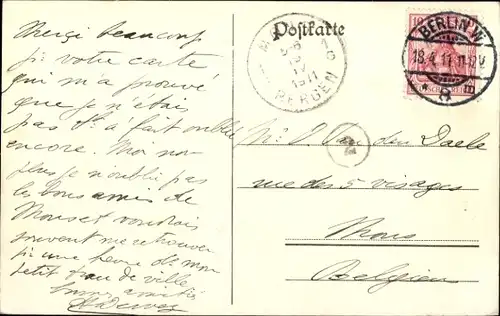 Merçi beaucoup
pr votre carte
qui m'a prouvé
que je n'étais
pas tt à fait oublié
encore. Moi non
plus je n'oublie pas
les bons amis de
Mons et voudrais
souvent me retrouver
pr une heure ds mon
petit trou de ville
Postkarte
MONS
BERGEN
BERLIN W.
8
10
Mr V. Van den Daele
rue des 5 visages
Mons
Belgien